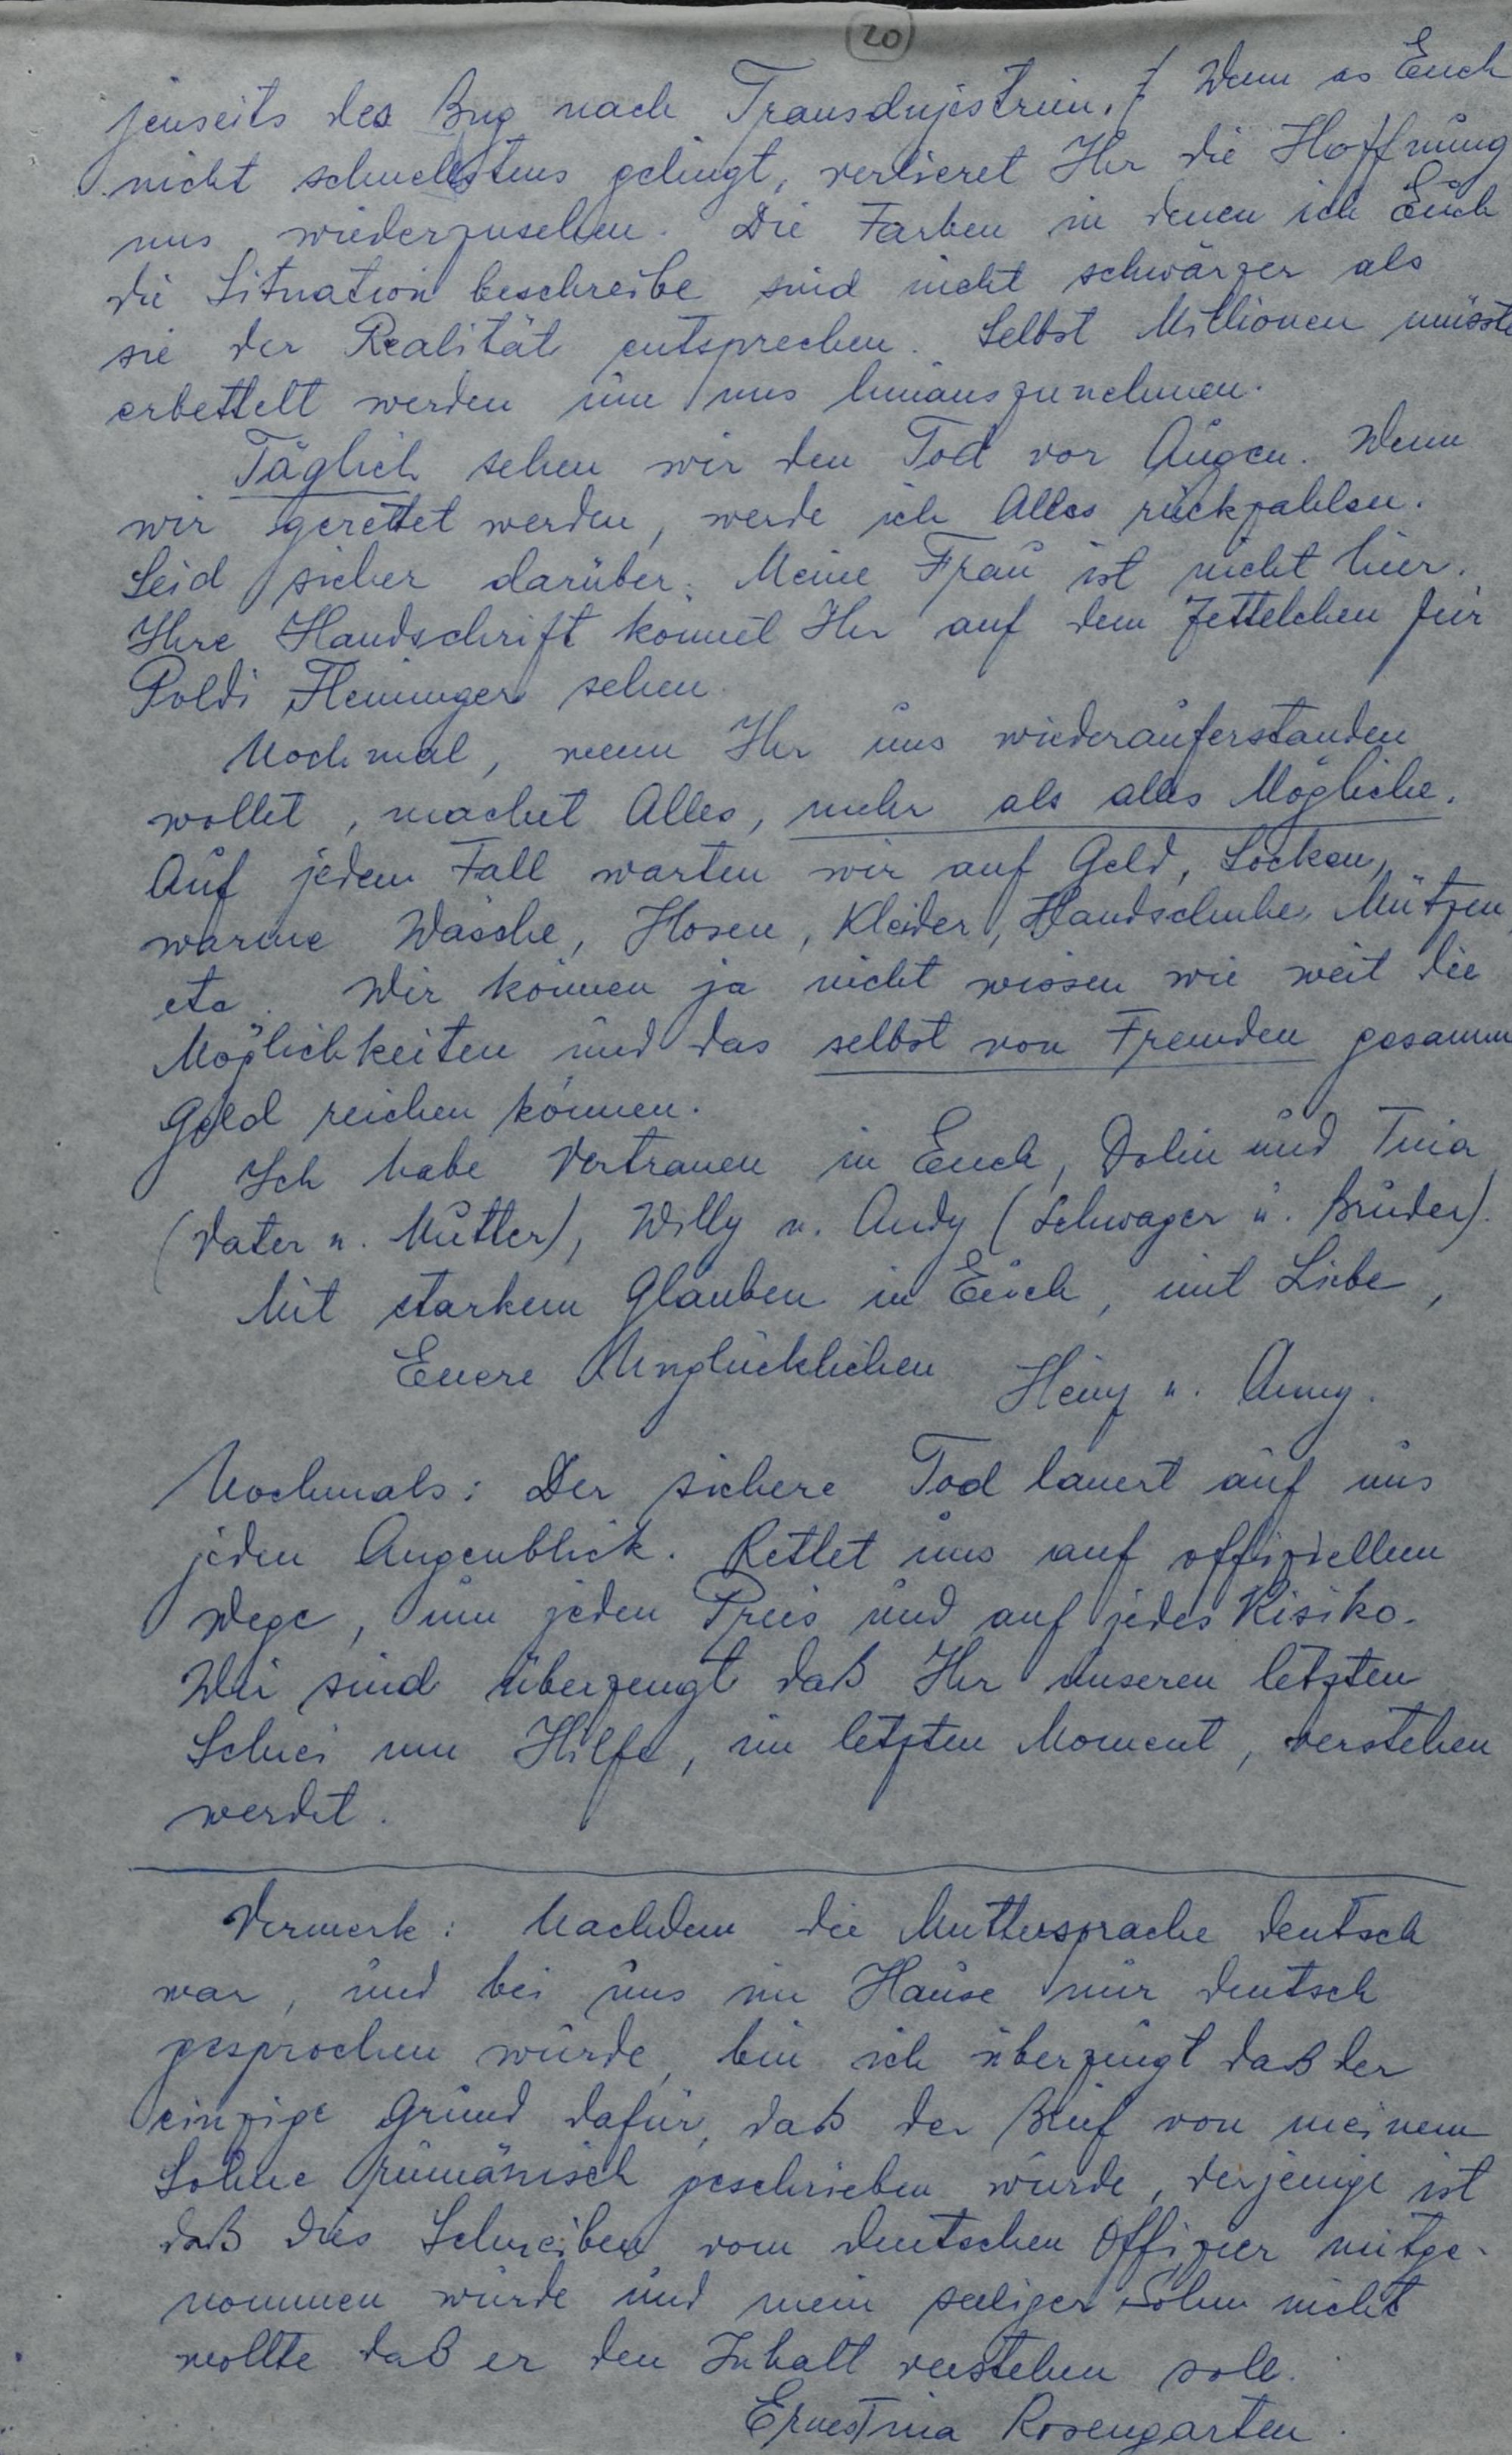 20
jenseits des Bug nach Transdnjestrien. / Wenn es Euch
nicht schnellstens gelingt, verlieret Ihr die Hoffnung
uns wiederzusehen. Die Farben in denen ich Euch
die Situation beschreibe sind nicht schwärzer als
sie der Realität entsprechen. Selbst Millionen müsste
erbettelt werden um uns hinauszunehmen.
Täglich sehen wir den Tod vor Augen. Wenn
wir gerettet werden, werde ich Alles rückzahlen.
Seid sicher darüber. Meine Frau ist nicht hier.
Ihre Handschrift könnet Ihr auf dem Zettelchen für
Poldi Fleminger sehen.
Nochmal, wenn Ihr uns wiederauferstanden
wollet, machet Alles, mehr als alles Mögliche.
Auf jedem Fall warten wir auf Geld, Socken,
warme Wäsche, Hosen, Kleider, Handschuhe, Mützen,
etc. Wir können ja nicht wissen wie weit die
Möglichkeiten und das selbst von Fremden gesamm
Geld reichen können.
Ich habe Vertrauen in Euch, Dolin und Tina
(Vater u. Mutter), Willy u. Andy (Schwager u. Bruder).
Mit starkem Glauben in Euch, mit Liebe,
Euere Unglücklichen Heinz u. Anny.
Nochmals: Der sichere Tod lauert auf uns
jeden Augenblick. Rettet uns auf offiziellem
Wege, um jeden Preis und auf jedes Risiko.
Wir sind überzeugt daß Ihr unseren letzten
Schrei um Hilfe, im letzten Moment, verstehen
werdet.
Vermerk: Nachdem die Muttersprache deutsch
war, und bei uns im Hause nur deutsch
gesprochen wurde, bin ich überzeugt daß der
einzige Grund dafür, daß der Brief von meinem
Sohne rumänisch geschrieben wurde, derjenige ist
daß dies Schreiben vom deutschen Offizier mitge-
nommen wurde und mein seeliger Sohn nicht
wollte daß er den Inhalt verstehen soll.
Ernestina Rosengarten.